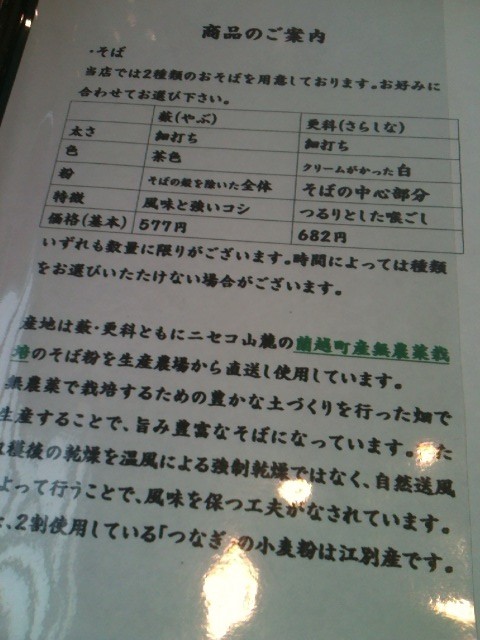 商品のご案内
・そば
当店では2種類のおそばを用意しております。お好みに
合わせてお選び下さい。
藪(やぶ) 更科(さらしな)
太さ 細打ち 細打ち
色 茶色 クリームがかった白
粉 そばの殻を除いた全体 そばの中心部分
特徴 風味と強いコシ つるりとした喉ごし
価格(基本) 577円 682円
いずれも数量に限りがございます。時間によっては種類
をお選びいたたけない場合がございます。
産地は藪・更科ともにニセコ山麓の蘭越町産無農薬栽
培のそば粉を生産農場から直送し使用しています。
無農薬で栽培するための豊かな土づくりを行った畑で
生産することで、旨み豊富なそばになっています。 た
穫後の乾燥を温風による強制乾燥ではなく、自然送風
よって行うことで、風味を保つ工夫がなされています。
、2割使用している「つなぎ の小麦粉は江別産です。